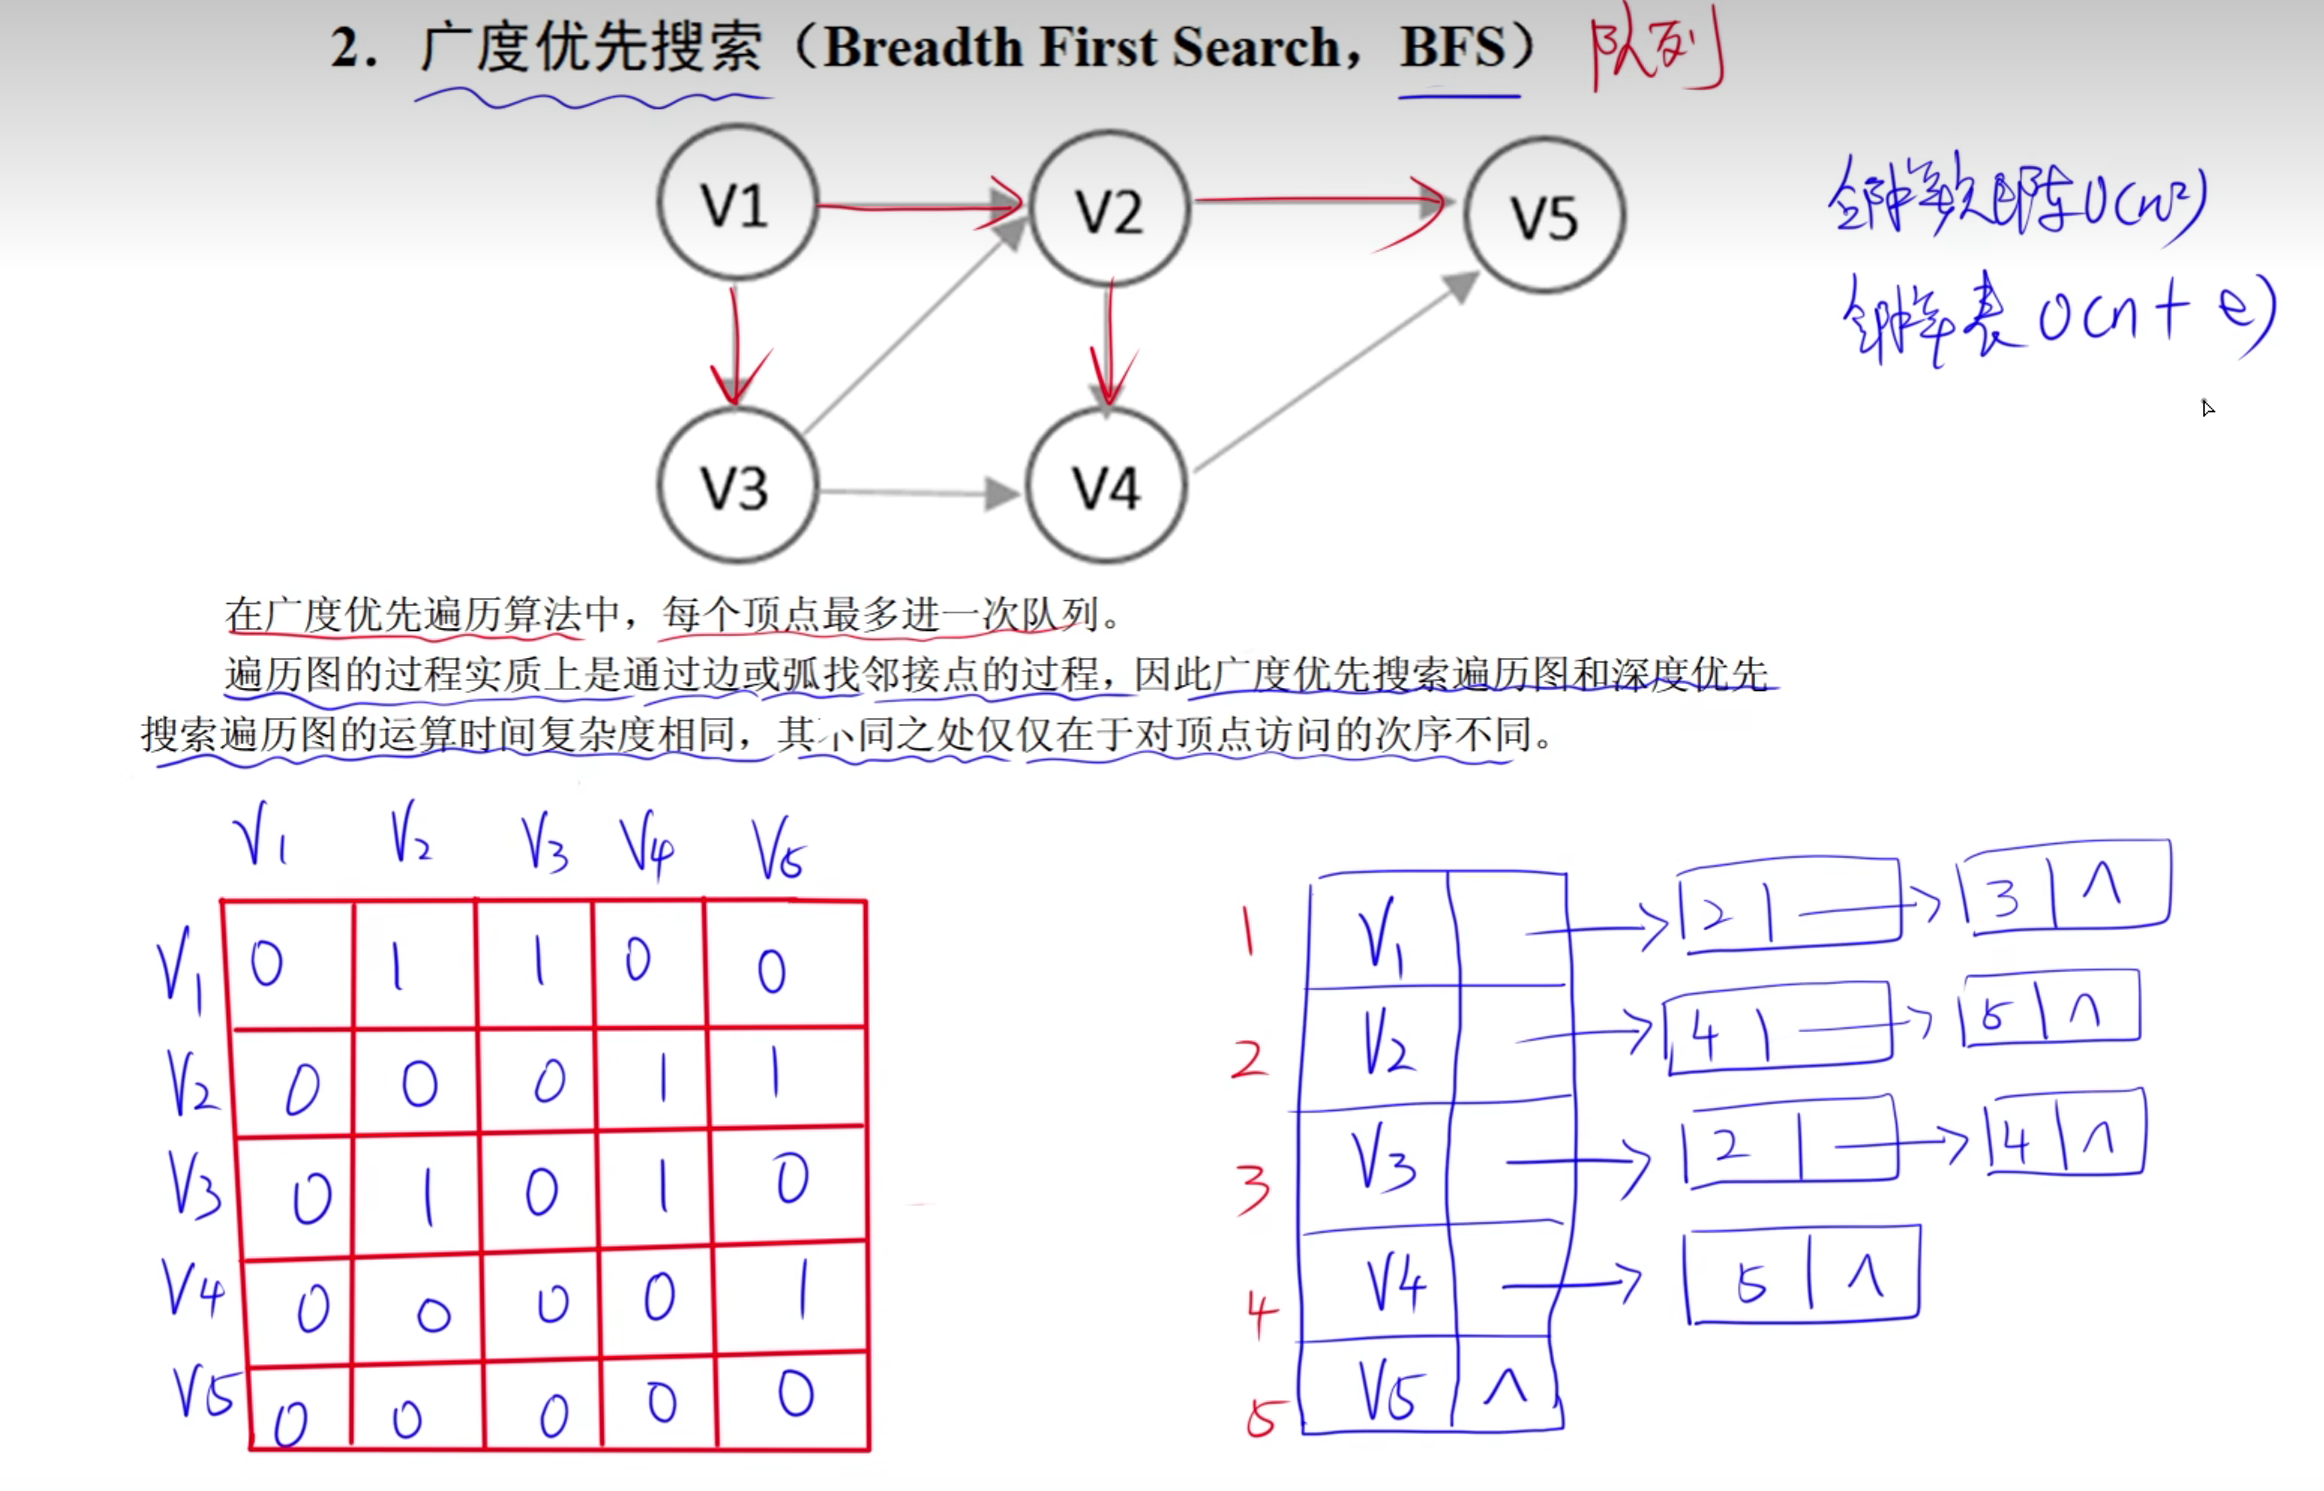 2. 广度优先搜索（Breadth First Search，BFS） 队列
V1 V2 V5
邻接矩阵 O(n²)
邻接表 O(n + e)
V3 V4
在广度优先遍历算法中，每个顶点最多进一次队列。
遍历图的过程实质上是通过边或弧找邻接点的过程，因此广度优先搜索遍历图和深度优先
搜索遍历图的运算时间复杂度相同，其不同之处仅仅在于对顶点访问的次序不同。
V1 V2 V3 V4 V5
V1 0 1 1 0 0
V2 0 0 0 1 1
V3 0 1 0 1 0
V4 0 0 0 0 1
V5 0 0 0 0 0
1 V1 2 3 ∧
2 V2 4 5 ∧
3 V3 2 4 ∧
4 V4 5 ∧
5 V5 ∧